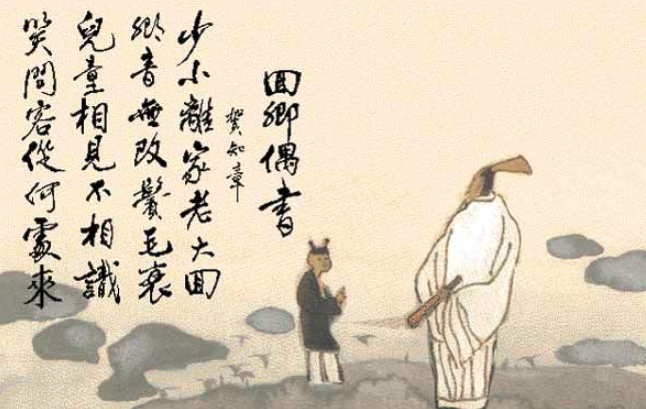 回鄉偶書
賀知章
少小離家老大回
鄉音無改鬢毛衰
兒童相見不相識
笑問客從何處來